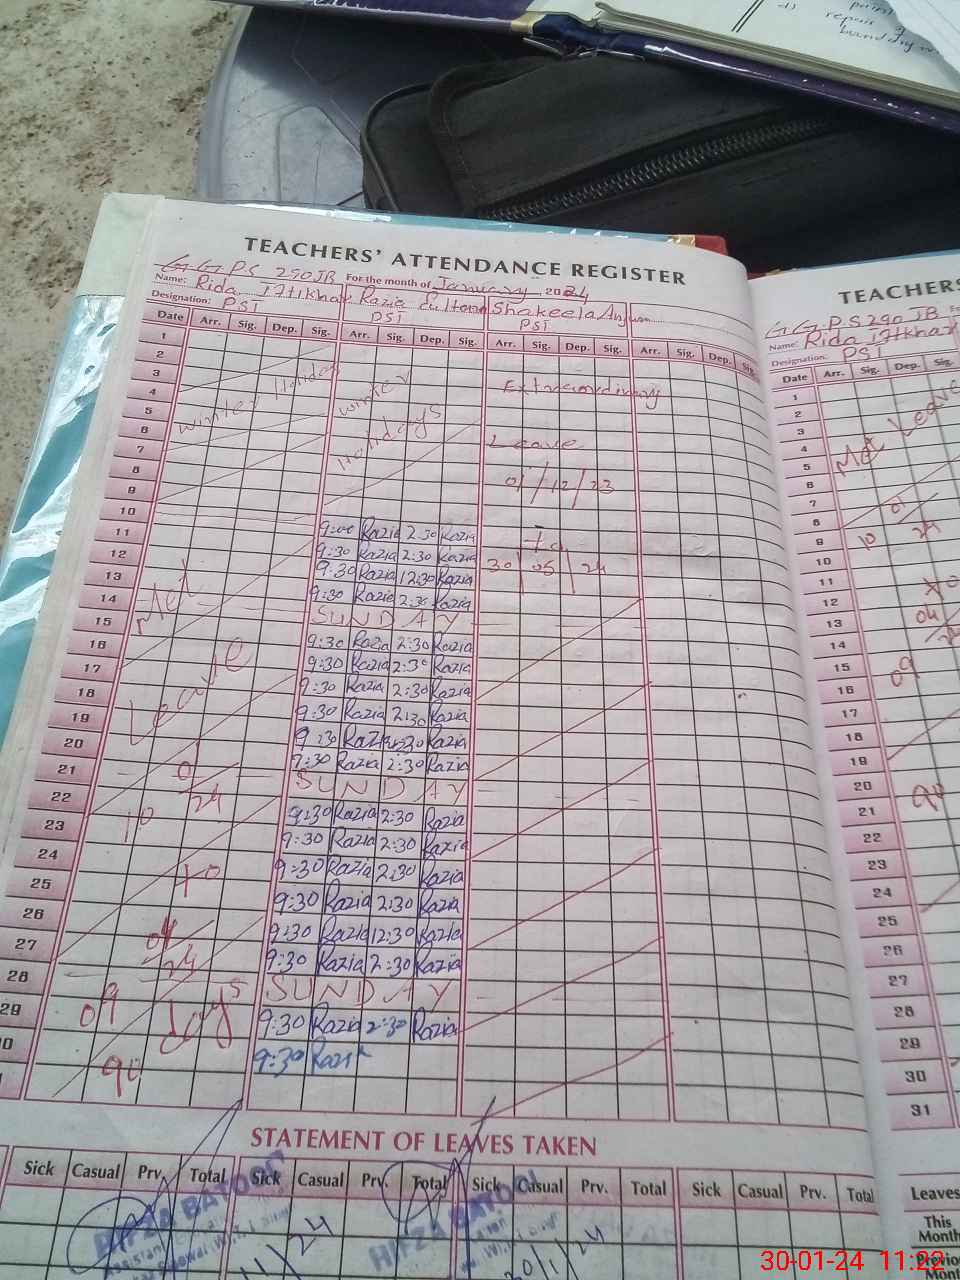 d) repair
boundary
TEACHERS' ATTENDANCE REGISTER
GGPS 290JB For the month of January, 2024
Name: Rida Iftikhar Razia Sultana Shakeela Anjum
Designation: PST PST PST
Date Arr. Sig. Dep. Sig. Arr. Sig. Dep. Sig. Arr. Sig. Dep. Sig. Arr. Sig. Dep. Sig.
1
2
3 Extraordinary
4 Winter Holiday Winter
5 Holidays
6 Leave
7
8 01/12/23
9
10
11 9:00 Razia 2:30 Razia To
12 9:30 Razia 2:30 Razia 30/05/24
13 9:30 Razia 12:30 Razia
14 9:30 Razia 2:30 Razia
15 Met SUNDAY
16 9:30 Razia 2:30 Razia
17 9:30 Razia 2:30 Razia
18 Leave 9:30 Razia 2:30 Razia
19 9:30 Razia 2:30 Razia
20 9:30 Razia 2:30 Razia
21 9:30 Razia 2:30 Razia
22 SUNDAY
23 10 01/24 9:30 Razia 2:30 Razia
24 9:30 Razia 2:30 Razia
25 To 9:30 Razia 2:30 Razia
26 9:30 Razia 2:30 Razia
27 04/24 9:30 Razia 12:30 Razia
28 9:30 Razia 2:30 Razia
29 09 days SUNDAY
30 9:30 Razia 2:30 Razia
90 9:30 Razia
STATEMENT OF LEAVES TAKEN
Sick Casual Prv. Total Sick Casual Prv. Total Sick Casual Prv. Total Sick Casual Prv. Total
HIFZA BATOOL
HIFZA BATOOL
TEACHERS
GGPS 290 JB
Name: Rida Iftikhar
Designation: PST
Date Arr. Sig. Dep. Sig.
1
2
3
4 Met Leave
5
6
7 01
8 24
9 10
10
11 To
12 04
13 24
14
15 09
16
17
18
19
20
21 90
22
23
24
25
26
27
28
29
30
31
Leaves
This
Month
Previous
Month
30-01-24 11:22